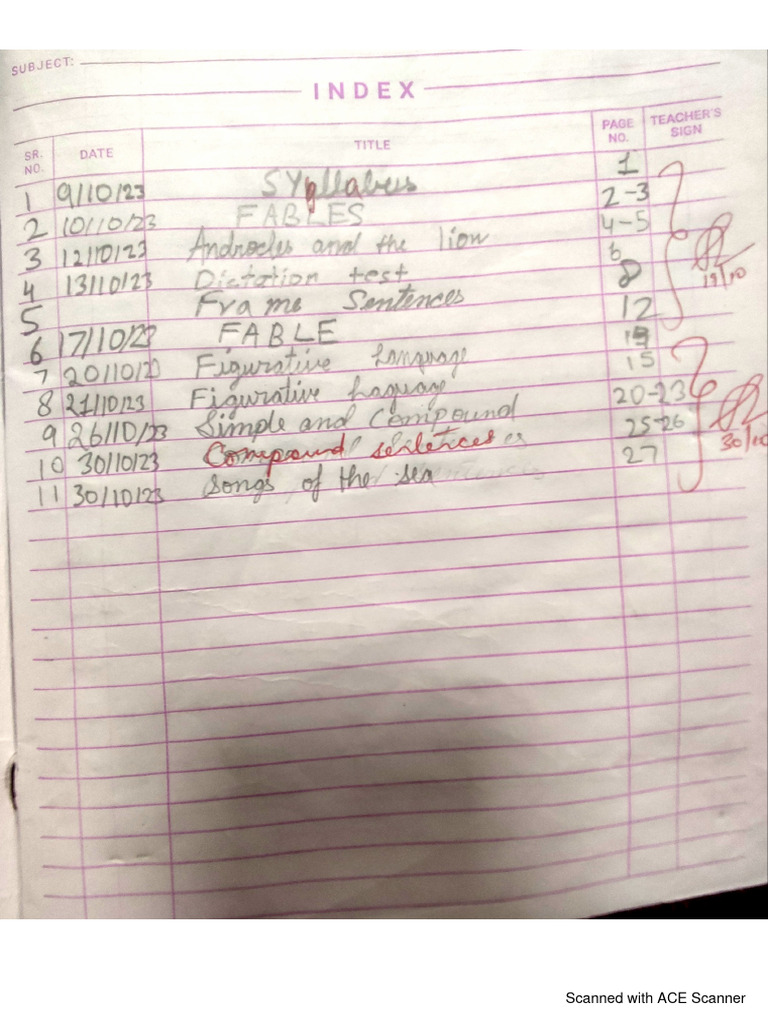 SUBJECT:
INDEX
SR. NO. DATE TITLE PAGE NO. TEACHER'S SIGN
1 9/10/23 SYllabus 1
2 10/10/23 FABLES 2-3
3 12/10/23 Androcles and the lion 4-5
4 13/10/23 Dictation test 6
5 Frame Sentences 8
6 17/10/23 FABLE 12
7 20/10/23 Figurative Language
8 21/10/23 Figurative Laguage 15
9 26/10/23 Simple and Compound 20-23
10 30/10/23 Compound sentences 25-26
11 30/10/23 Songs of the sea 27
19/10
30/10
Scanned with ACE Scanner